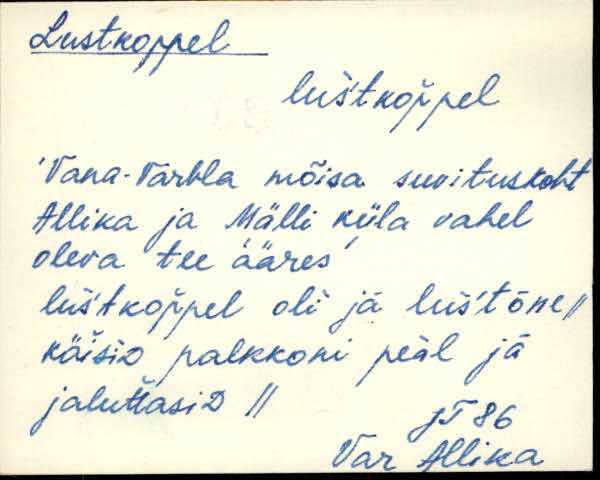 Lustkoppel
lus̆'tkop̆pel
'Vana-Varbla mõisa suvituskoht
Allika ja Mälli küla vahel
oleva tee ääres'
lus̆'tkop̆pel oli jä lus̆'tõne //
käisiD palkkoni peäl jä
jaluttasiD //
JT 86
Var Allika